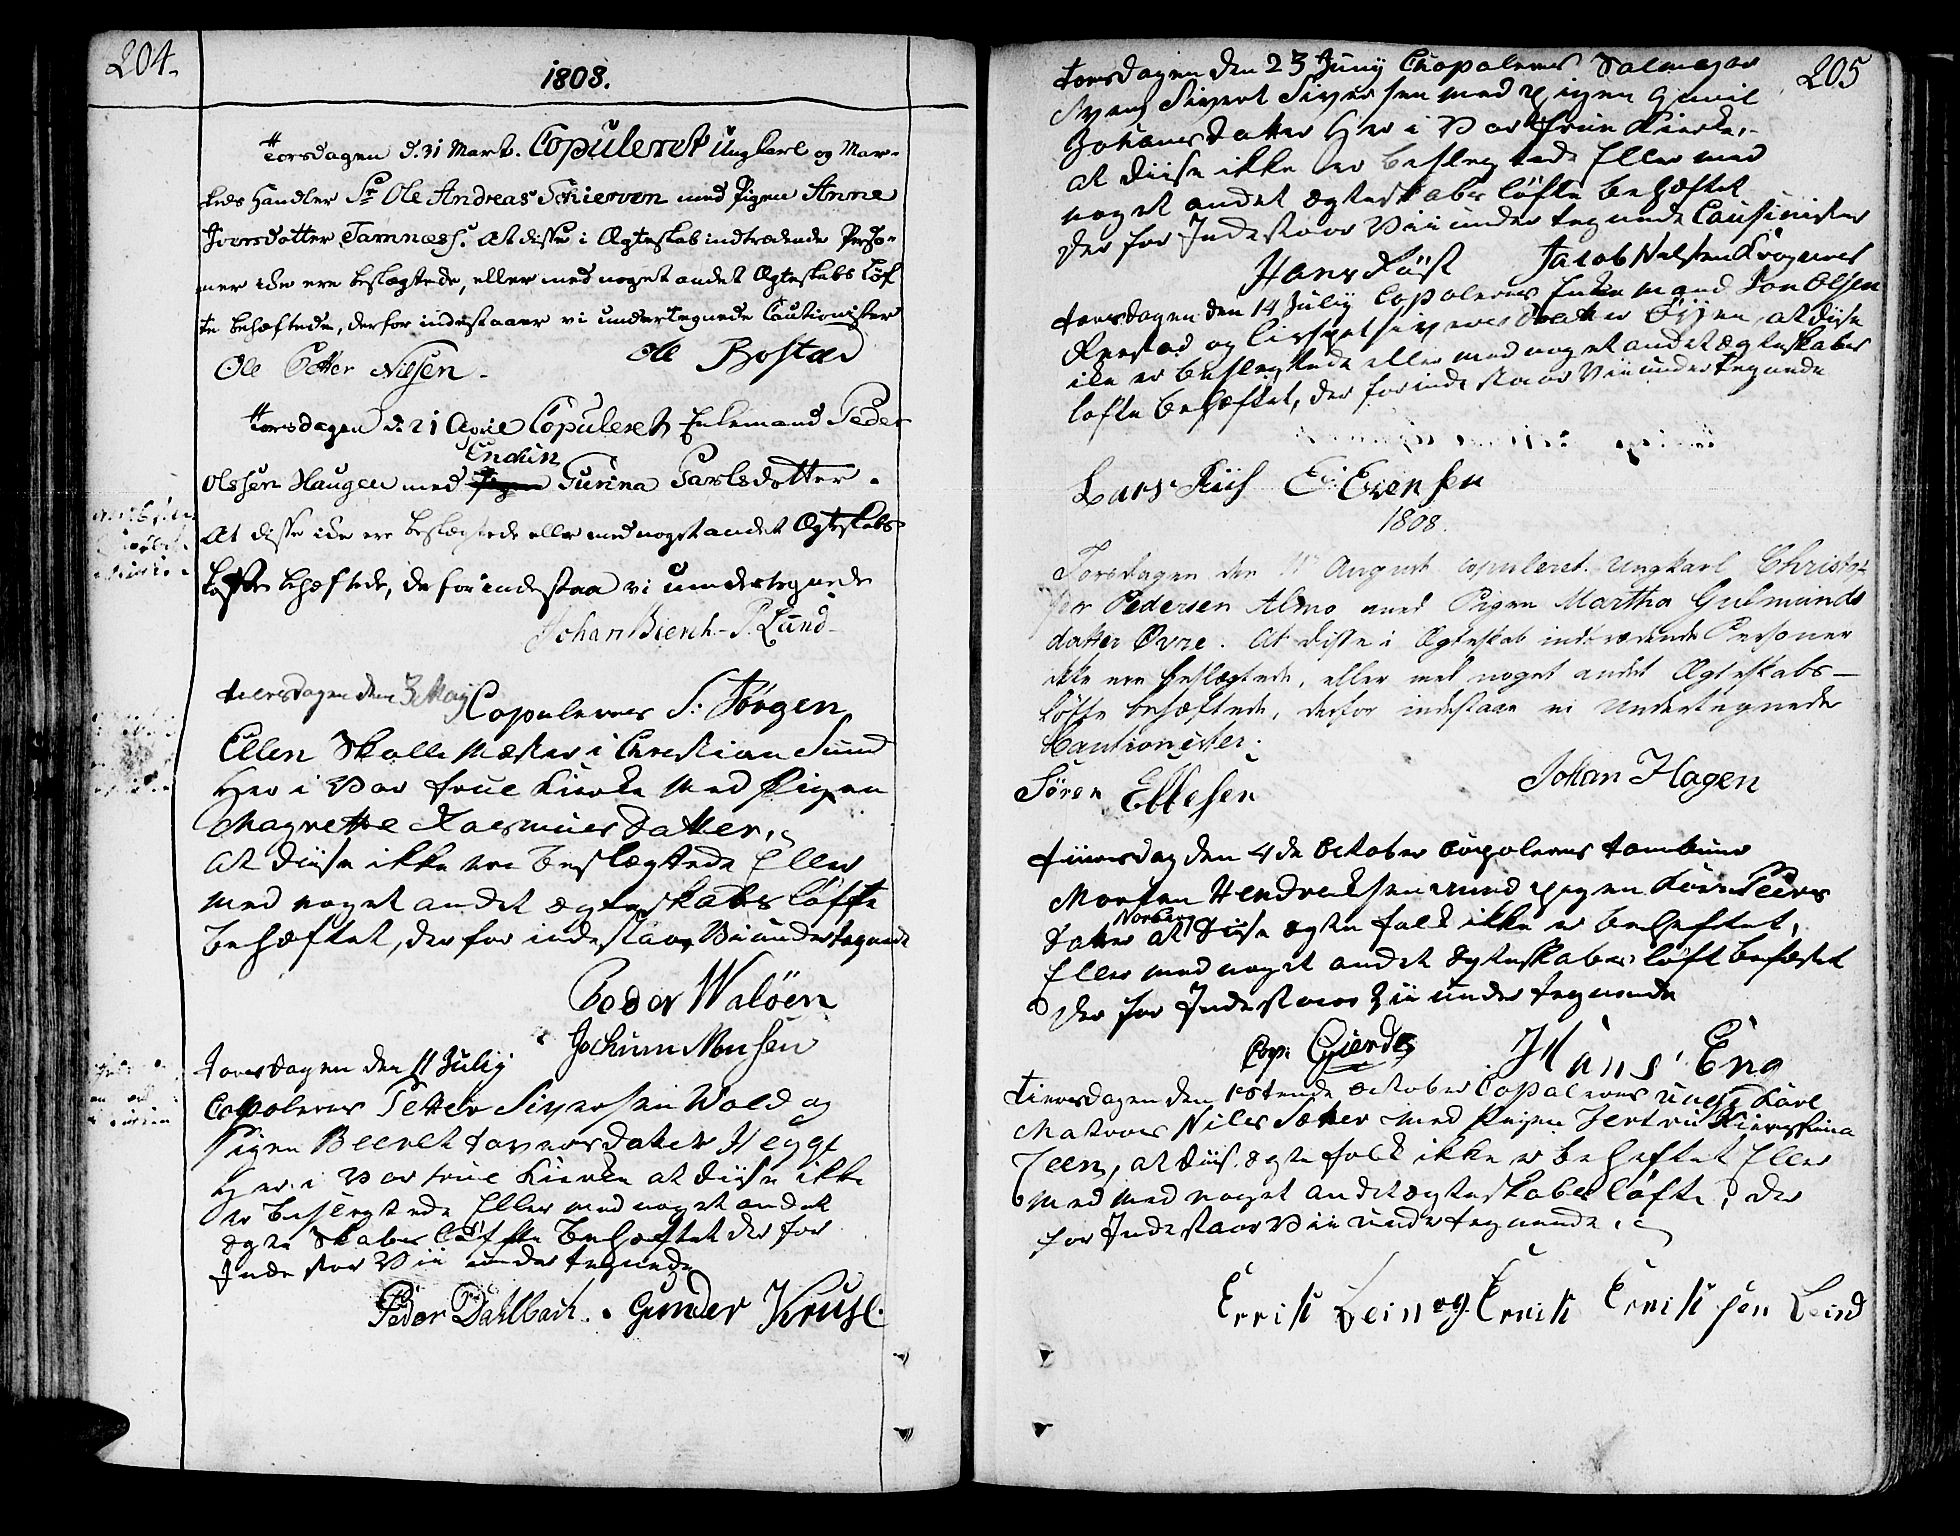 204.
1808.
Torsdagen d. 31 Mart. Copuleret Ungkarl og Mar-
keds Handler Sr Ole Andreas Schierven med Pigen Anne
Joorsdotter Tamnæss. At disse i Ægteskab indtrædende Perso-
ner ikke ere beslægtede, eller med noget andet Ægteskabs Løf
te behæftede, derfor indestaaer vi undertegnede Cautionister
Ole Petter Nilsen. Ole Bostad
Torsdagen d. 21 April Copuleret Enkemand Peder
Enckin
Olssen Haugen med Pigen Gurina Carlsdotter.
At disse ikke ere beslægtede eller med noget andet Ægteskabs
Løfte behæftede, derfor indestaa vi undertegnede
Johan Bierch - P. Lund
tiersdagen den 3 Maij Copuleeres S. Jørgen
Ellen Skolle Mæster i Christian Sund
Her i Vor frue Kierke Med Pigen
Magrethe Rasmues datter,
at diise ikke ere beslægtede Eller
med noget andet ægteskabs løffte
behæftet, der for indestaar Vi undertegnede
Peder Waløen
Jochum Monsen
torsdagen den 11 Julij
Copoleres Petter Siversen Wold og
Pigen Beeret tarversdater Hegge
Her i Vor frue Kierke at diise ikke
er beslegtede Eller med noget andet
ægte Skabes løffte behæftet der for
Inde star Vii under tegnede
Peder Dahlbach. Gunder Krusl.
205
torsdagen den 23 Junij Chopoleres Salmager
Svend Sivert Siversen med Pigen Gunil
Johanesdatter Her i Vor Frue Kierke,
at diise ikke er beslegtede Eller med
noget andet ægteskabes løfte behæftet
der for Indestaar Vii under tegnede Causinister
Hans Røst Jacob Nilsen Krognes
torsdagen den 14 Julij Copoleres Enke mand Jon Olsen
Reestad og lisbet sivers datter Øyen, at diise
ike er beslegtede eller med noget andet ægteskabes
løfte behæftet, der for inde staar Vii under tegnede
Lars Riis E. Evensen
1808.
Torsdagen den 11te August copuleret Ungkarl Christof-
fer Pedersen Almo med Pigen Martha Gulmunds
datter Øvre. At disse i Ægteskab indtrædende Personer
ikke ere beslægtede, eller med noget andet Ægteskabs-
Løfte behæftede, derfor indestaae vi undertegnede
Cautionister.
Sören Ellefsen Johan Hagen
tiirsdag den 4de October Copoleres tambuur
Morten Hendrecksen med Pigen Karn Peirs
Norberg
dater at diise ægte folk ikke er behefttet,
Eller med noget andet ægteskabes løft behæftet
der for Indestaar Vii under tegnende
Cop: Gierdes Hans Eng
tiersdagen den 18tende October Copoleres unge Karl
Matroes Niles Sæter med Pigen Jertru Kierstina
Teen, at diise ægte folk ikke er beheftet Eller
med med noget andet ægteskabes løfte, der
for Indestaar Vii under tegnende.
Errik Lein og Errik Errik sen Leind